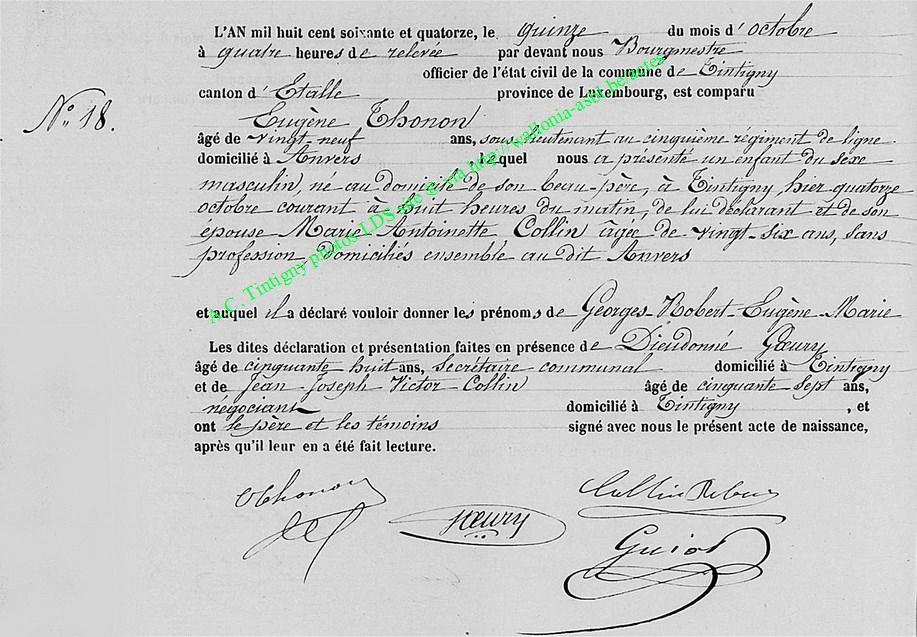 L'AN mil huit cent soixante et quatorze, le quinze du mois d'octobre
à quatre heures de relevée par devant nous Bourgmestre
officier de l'état civil de la commune de Tintigny
canton d'Etalle province de Luxembourg, est comparu
N° 18.
Eugène Thonon
âgé de vingt-neuf ans, sous lieutenant au cinquième régiment de ligne
domicilié à Anvers lequel nous a présenté un enfant du sexe
masculin, né au domicile de son beau-père, à Tintigny, hier quatorze
octobre courant à huit heures du matin, de lui déclarant et de son
epouse Marie Antoinette Collin âgée de vingt-six ans, sans
profession, domiciliés ensemble au dit Anvers
et auquel il a déclaré vouloir donner les prénoms de Georges-Robert-Eugène-Marie
Les dites déclaration et présentation faites en présence de Dieudonné Goeury
âgé de cinquante huit ans, secrétaire communal domicilié à Tintigny
et de Jean Joseph Victor Collin âgé de cinquante sept ans,
négociant domicilié à Tintigny, et
ont le père et les témoins signé avec nous le présent acte de naissance,
après qu'il leur en a été fait lecture.
A.C. Tintigny photos LDS site @ via http://wallonia-asbl.be/autes
EThonon
Goeury
Collin
Guiot